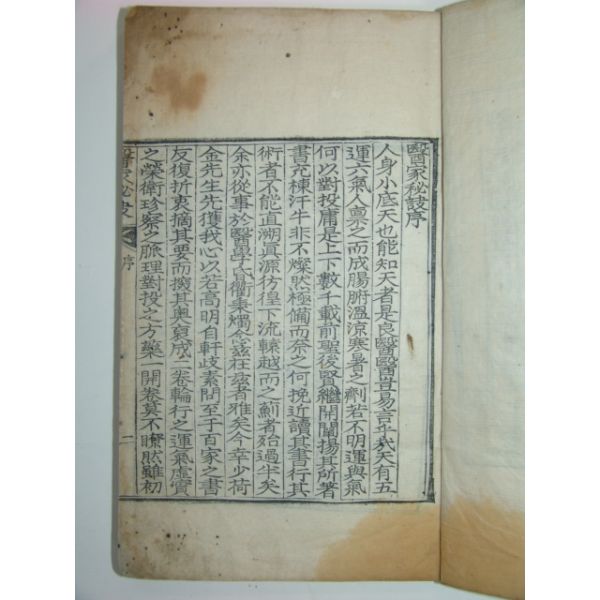 醫家秘訣序
人身小底天也能知天者是良醫醫豈易言乎哉天有五
運六氣人禀之而成腸腑溫涼寒暑之劑若不明運與氣
何以對投庸是上下數千載前聖後賢繼開闡揚其所著
書充棟汗牛非不燦然極備而奈之何挽近讀其書行其
術者不能直溯眞源彷徨下流轅越而之薊者殆過半矣
余亦從事於醫學氏衢秉燭念玆在玆者雅矣今幸少荷
金先生先獲我心以若高明自軒歧素問至于百家之書
反復折衷摘其要而撥其奧裒成一卷輪行之運氣虛實
之榮衛珍察之脈理對投之方藥一開卷莫不瞭然雖初
醫家秘訣 序 一